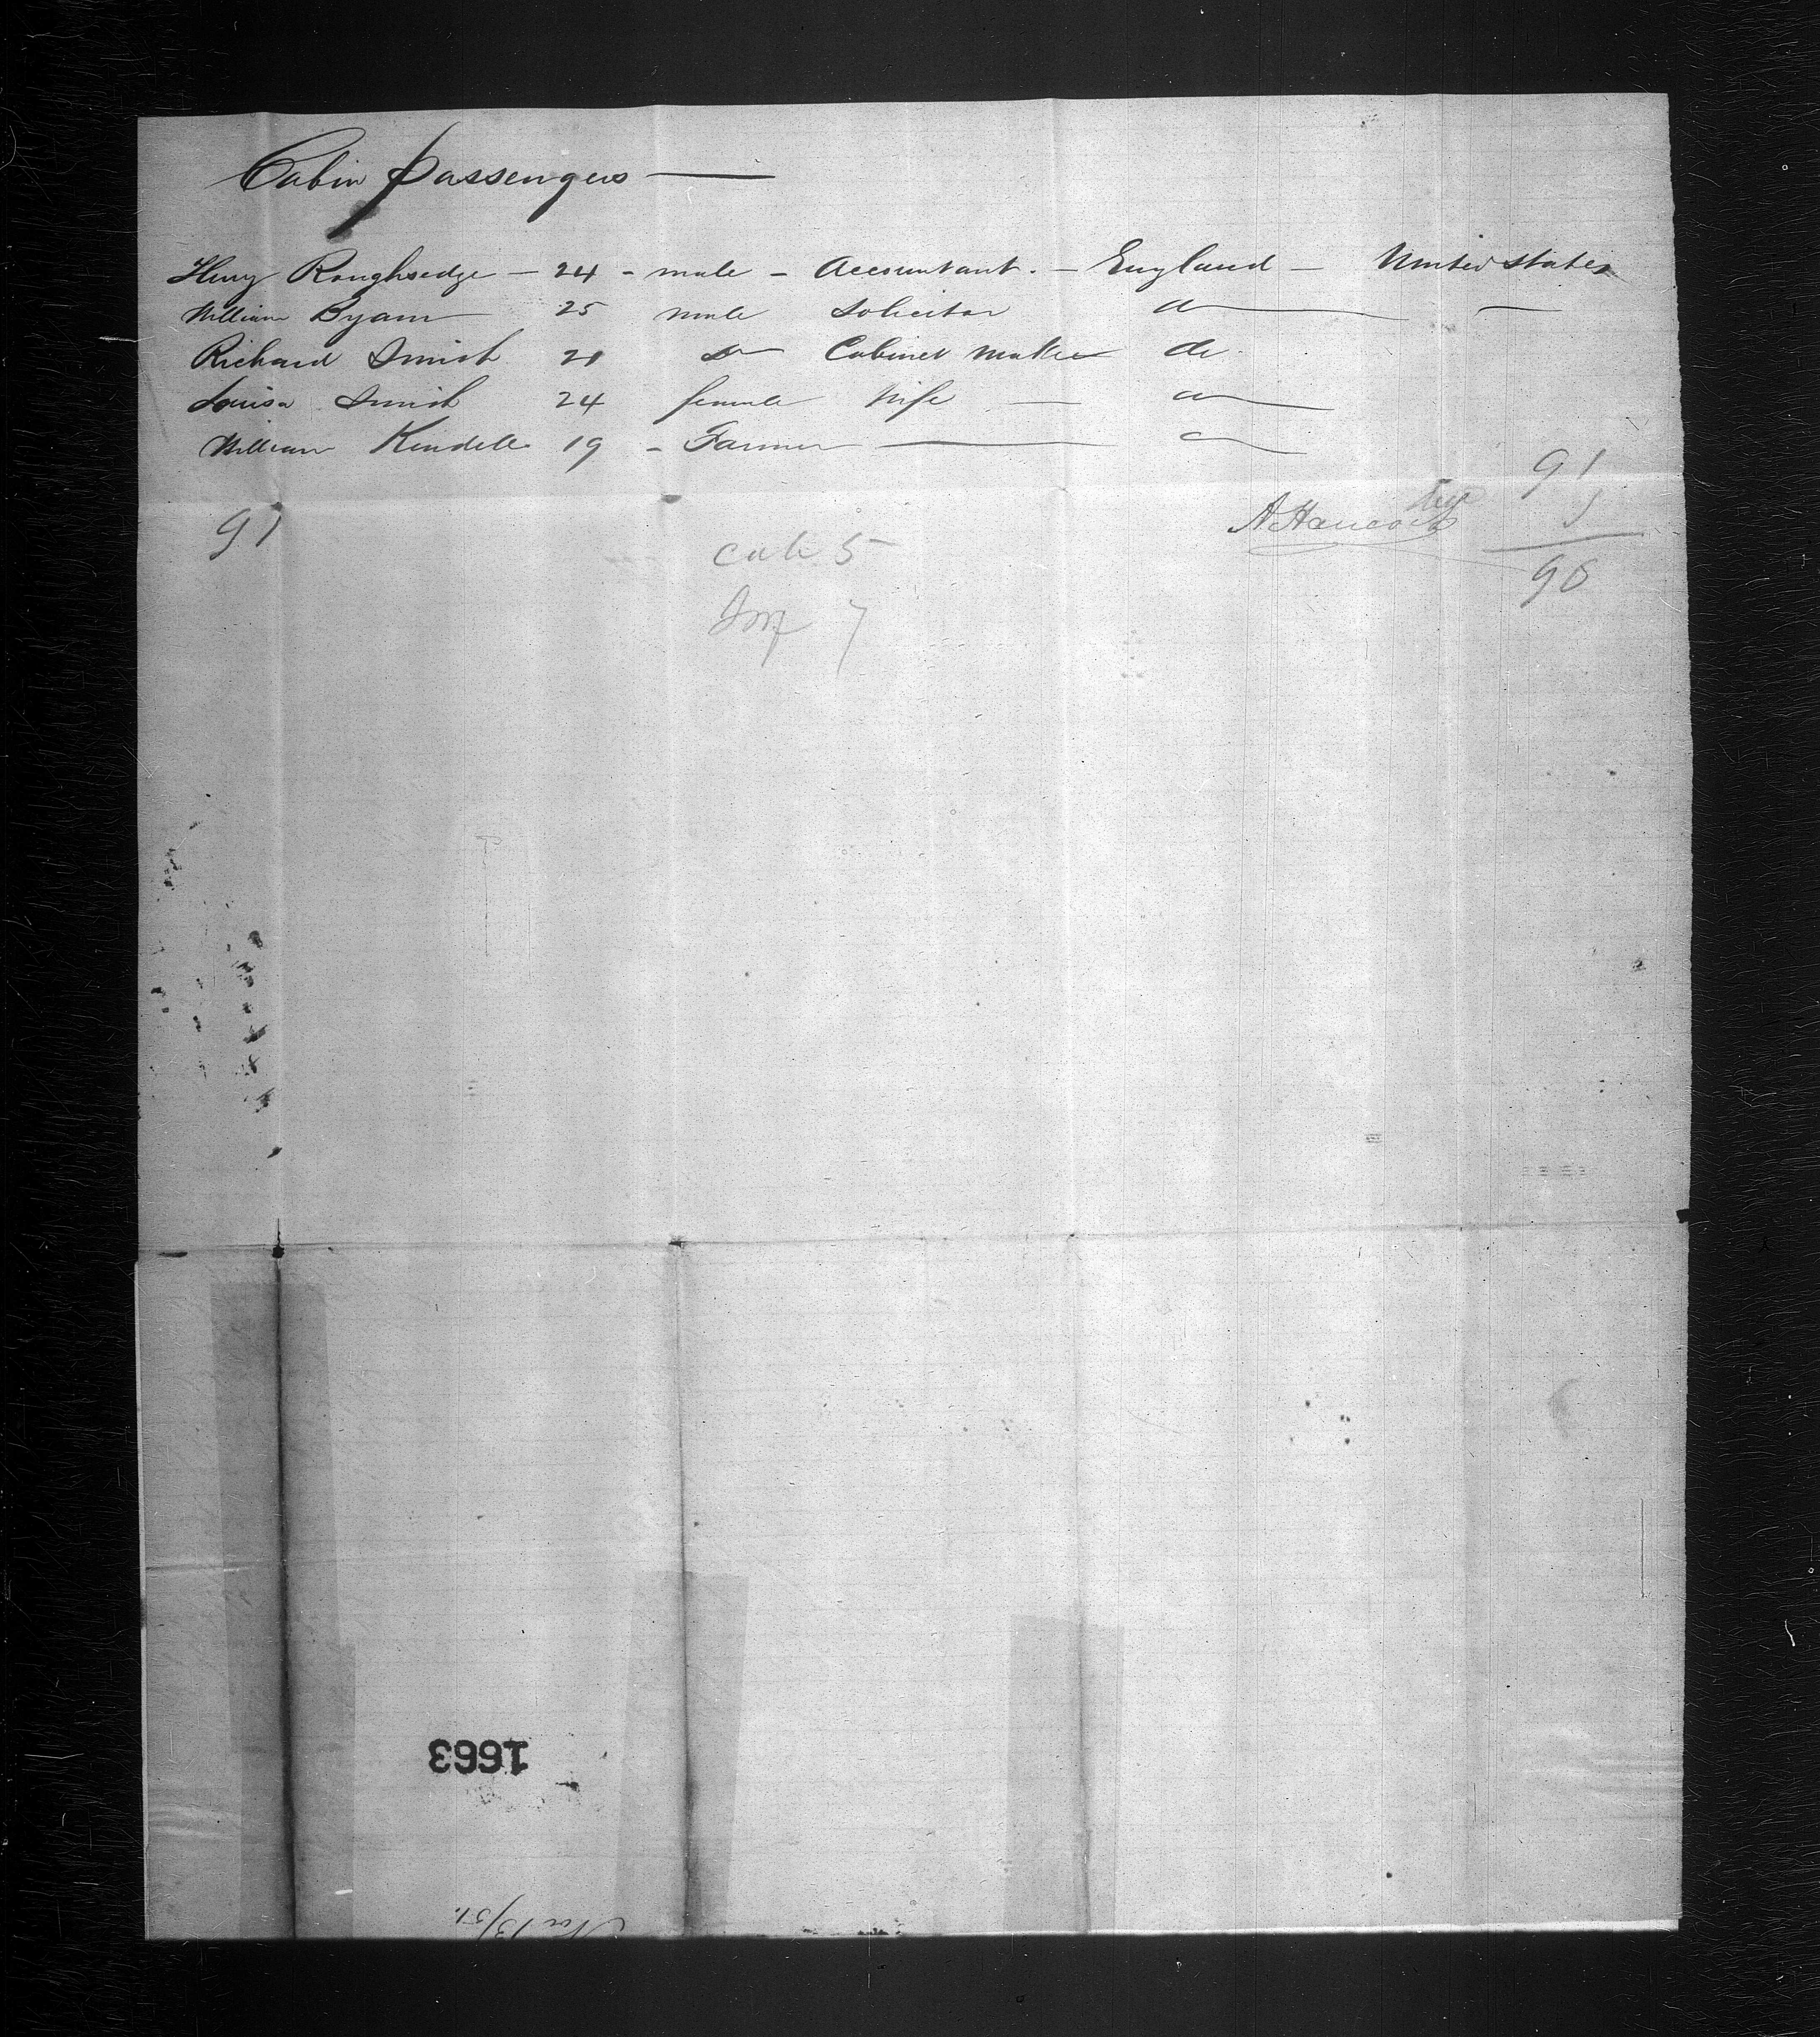 Cabin passengers —
Henry Roughsedge — 24 - male - Accountant. - England — United States
William Byam 25 male Solicitor do —
Richard Smith 21 do Cabinet Maker do
Louisa Smith 24 female Wife — do
William Kendell 19 - Farmer — do
91
91
5
96
A Hancock
Cab 5
Inf 7
1663
Nov 13/51.